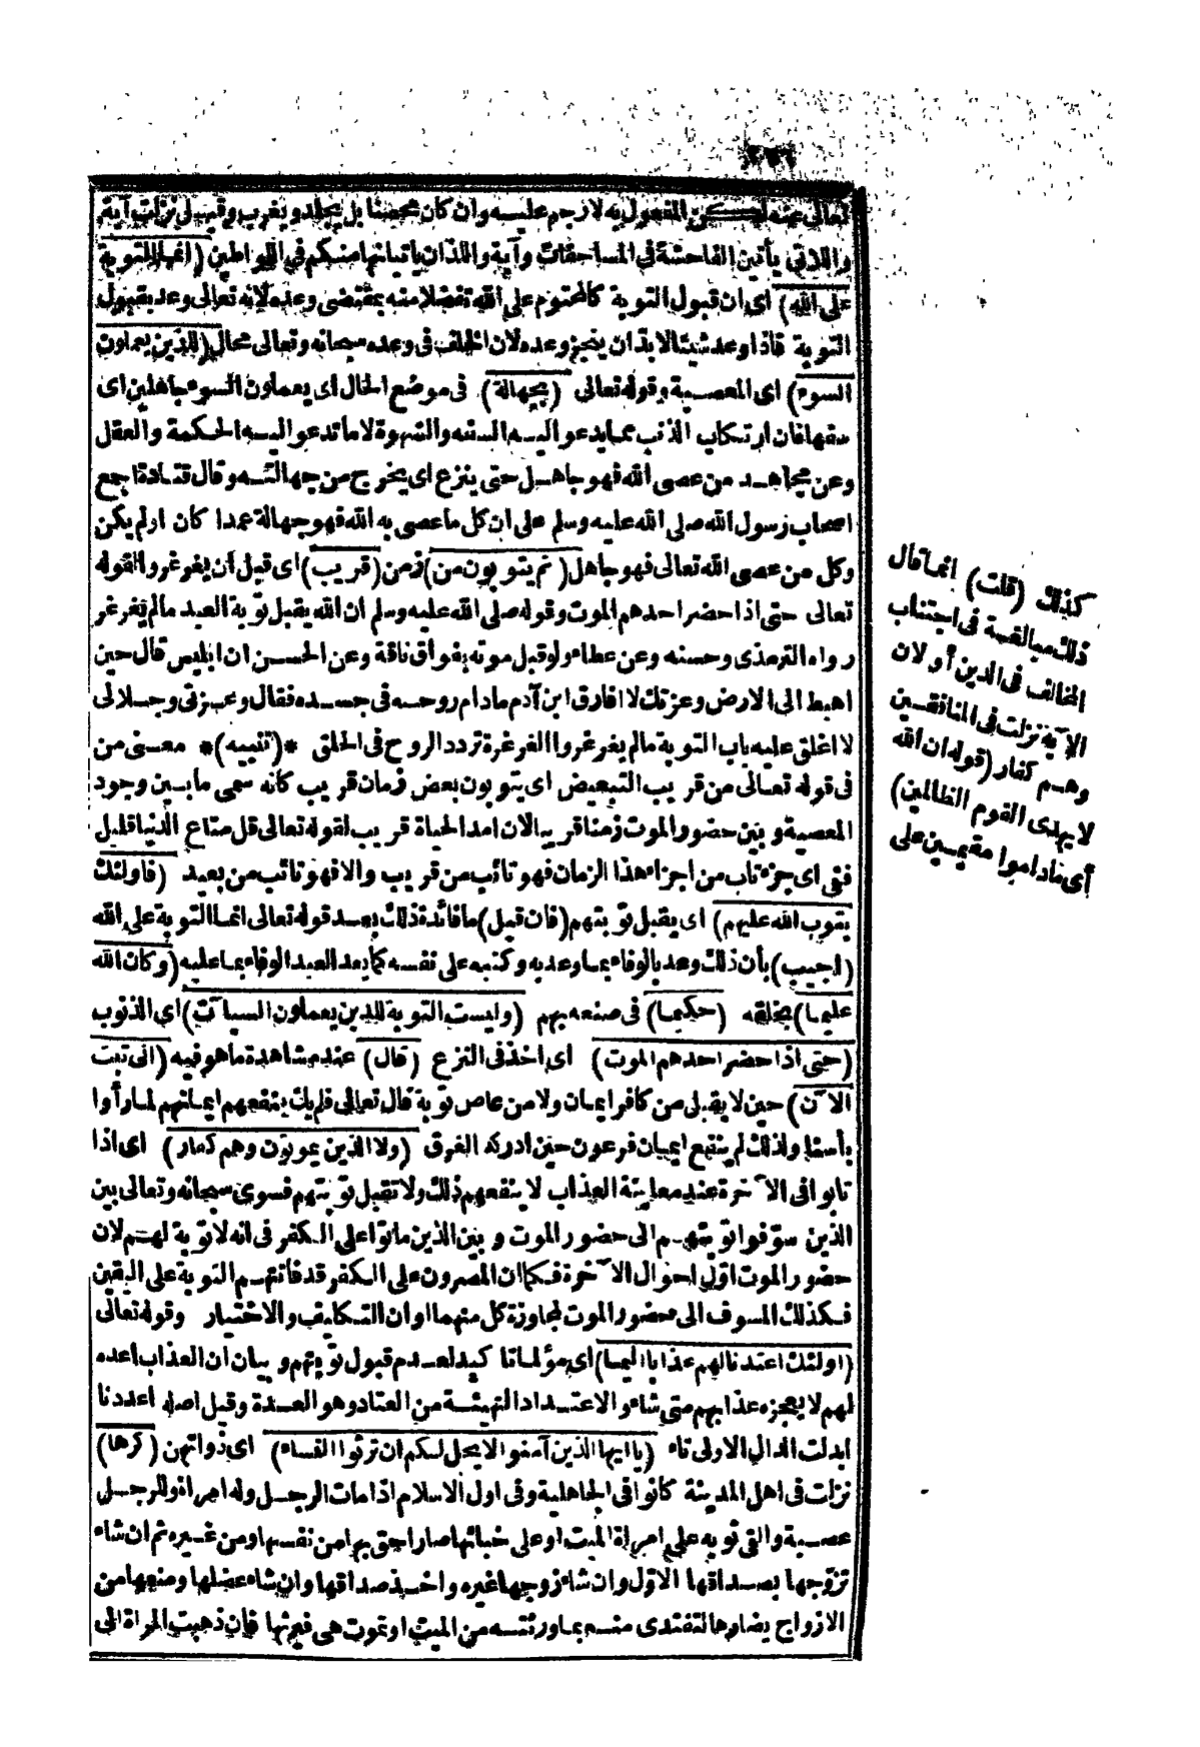 تعالى عنه لكن المفعول به لا رجم عليه وان كان محصنا بل يجلد ويغرب وقيل نزلت آية
واللاتى يأتين الفاحشة فى المساحقات وآية واللذان يأتيانها منكم فى اللواطين (انما التوبة
على الله) اى ان قبول التوبة كالمحتوم على الله تفضلا منه بمقتضى وعده لانه تعالى وعد بقبول
التوبة فاذا وعد شيئا لا بد ان ينجز وعده لان الخلف فى وعده سبحانه وتعالى محال (للذين يعملون
السوء) اى المعصية وقوله تعالى (بجهالة) فى موضع الحال اى يعملون السوء جاهلين اى
سفها فان ارتكاب الذنب مما يدعو اليه السفه والشهوة لا ما تدعو اليه الحكمة والعقل
وعن مجاهد من عصى الله فهو جاهل حتى ينزع اى يخرج من جهالته وقال قتادة اجمع
اصحاب رسول الله صلى الله عليه وسلم على ان كل ما عصى به الله فهو جهالة عمدا كان او لم يكن
وكل من عصى الله تعالى فهو جاهل (ثم يتوبون من) زمن (قريب) اى قبل ان يغرغروا لقوله
تعالى حتى اذا حضر احدهم الموت وقوله صلى الله عليه وسلم ان الله يقبل توبة العبد مالم يغرغر
رواه الترمذى وحسنه وعن عطاء ولو قبل موته بفواق ناقة وعن الحسن ان ابليس قال حين
اهبط الى الارض وعزتك لا افارق ابن آدم مادام روحه فى جسده فقال وعزتى وجلالى
لا اغلق عليه باب التوبة مالم يغرغر والغرغرة تردد الروح فى الحلق *(تنبيه)* معنى من
فى قوله تعالى من قريب التبعيض اى يتوبون بعض زمان قريب كانه سمى ما بين وجود
المعصية وبين حضور الموت زمنا قريبا لان امد الحياة قريب لقوله تعالى قل متاع الدنيا قليل
ففى اى جزء تاب من اجزاء هذا الزمان فهو تائب من قريب والا فهو تائب من بعيد (فاولئك
يتوب الله عليهم) اى يقبل توبتهم (فان قيل) ما فائدة ذلك بعد قوله تعالى انما التوبة على الله
(اجيب) بأن ذلك وعد بالوفاء بما وعد به وكتبه على نفسه كما يعد العبد الوفاء بما عليه (وكان الله
عليما) بخلقه (حكيما) فى صنعه بهم (وليست التوبة للذين يعملون السيآت) اى الذنوب
(حتى اذا حضر احدهم الموت) اى اخذ فى النزع (قال) عند مشاهدة ما هو فيه (انى تبت
الآن) حين لا يقبل من كافر ايمان ولا من عاص توبة قال تعالى فلم يك ينفعهم ايمانهم لما رأوا
بأسنا ولذلك لم ينفع ايمان فرعون حين ادركه الغرق (ولا الذين يموتون وهم كفار) اى اذا
تابوا فى الآخرة عند معاينة العذاب لا ينفعهم ذلك ولا تقبل توبتهم فسوى سبحانه وتعالى بين
الذين سوّفوا توبتهم الى حضور الموت وبين الذين ماتوا على الكفر فى انه لا توبة لهم لان
حضور الموت اوّل احوال الآخرة فكما ان المصرون على الكفر قد فاتتهم التوبة على اليقين
فكذلك المسوف الى حضور الموت لمجاوزة كل منهما اوان التكليف والاختيار وقوله تعالى
(اولئك اعتدنا لهم عذابا اليما) اى مؤلما تأكيد لعدم قبول توبتهم وبيان ان العذاب اعده
لهم لا يعجزه عذابهم متى شاء والاعتداد التهيئة من العتاد وهو العدة وقيل اصله اعددنا
ابدلت الدال الاولى تاء (يا ايها الذين آمنوا لا يحل لكم ان ترثوا النساء) اى ذواتهن (كرها)
نزلت فى اهل المدينة كانوا فى الجاهلية وفى اول الاسلام اذا مات الرجل وله امرأة وللرجل
عصبة والقى ثوبه على امرأة الميت او على خبائها صار احق بها من نفسها ومن غيره ثم ان شاء
تزوّجها بصداقها الاوّل وان شاء زوجها غيره واخذ صداقها وان شاء عضلها ومنعها من
الازواج يضارها لتفتدى منه بما ورثته من الميت او تموت هى فيرثها فان ذهبت المرأة الى
كذلك (قلت) انما قال
ذلك مبالغة فى اجتناب
المخالف فى الدين أو لان
الآية نزلت فى المنافقين
وهم كفار (قوله ان الله
لا يهدى القوم الظالمين)
أى ماداموا مقيمين على